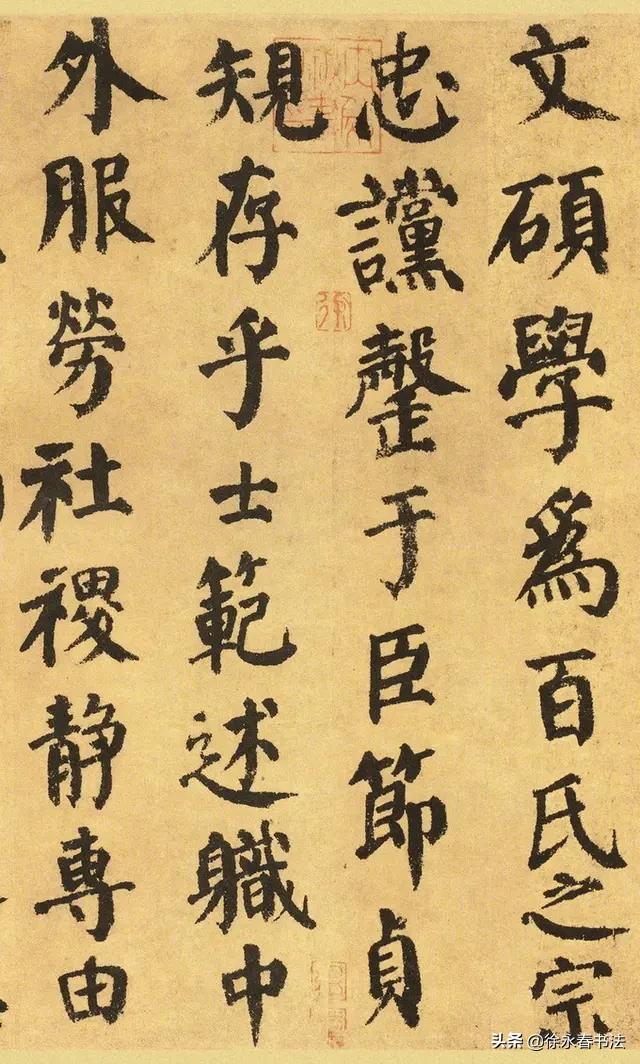 文碩學為百氏之宗
忠讜罄于臣節貞
規存乎士範述職中
外服勞社稷静專由
头条 @徐永春书法